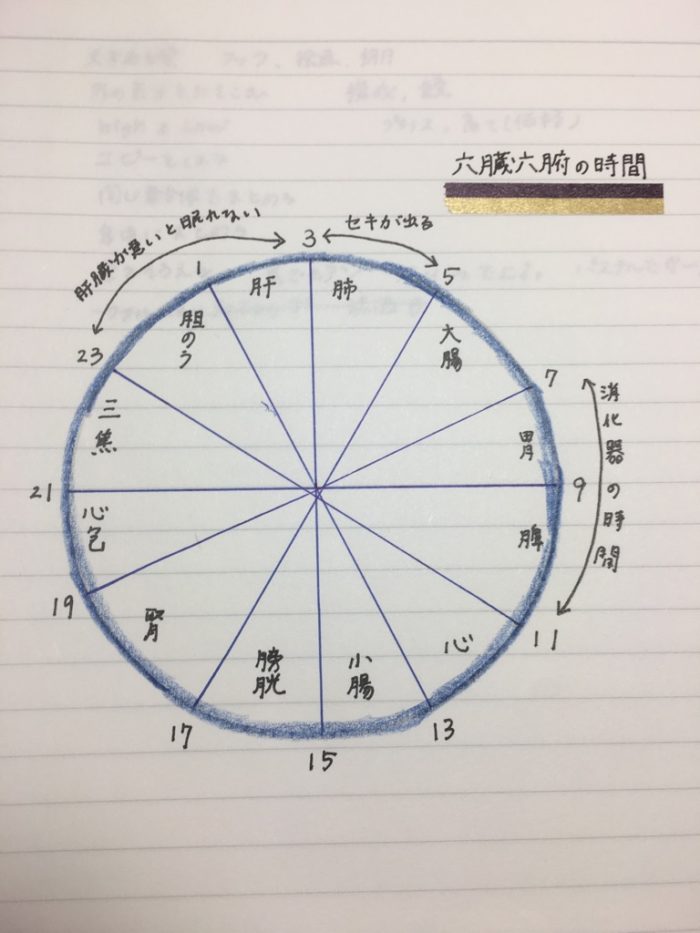 六臓六腑の時間
肝臓が悪いと眠れない
セキが出る
消化器の時間
3
肺
5
大腸
7
胃
9
脾
11
心
13
小腸
15
膀胱
17
腎
19
心包
21
三焦
23
胆のう
1
肝